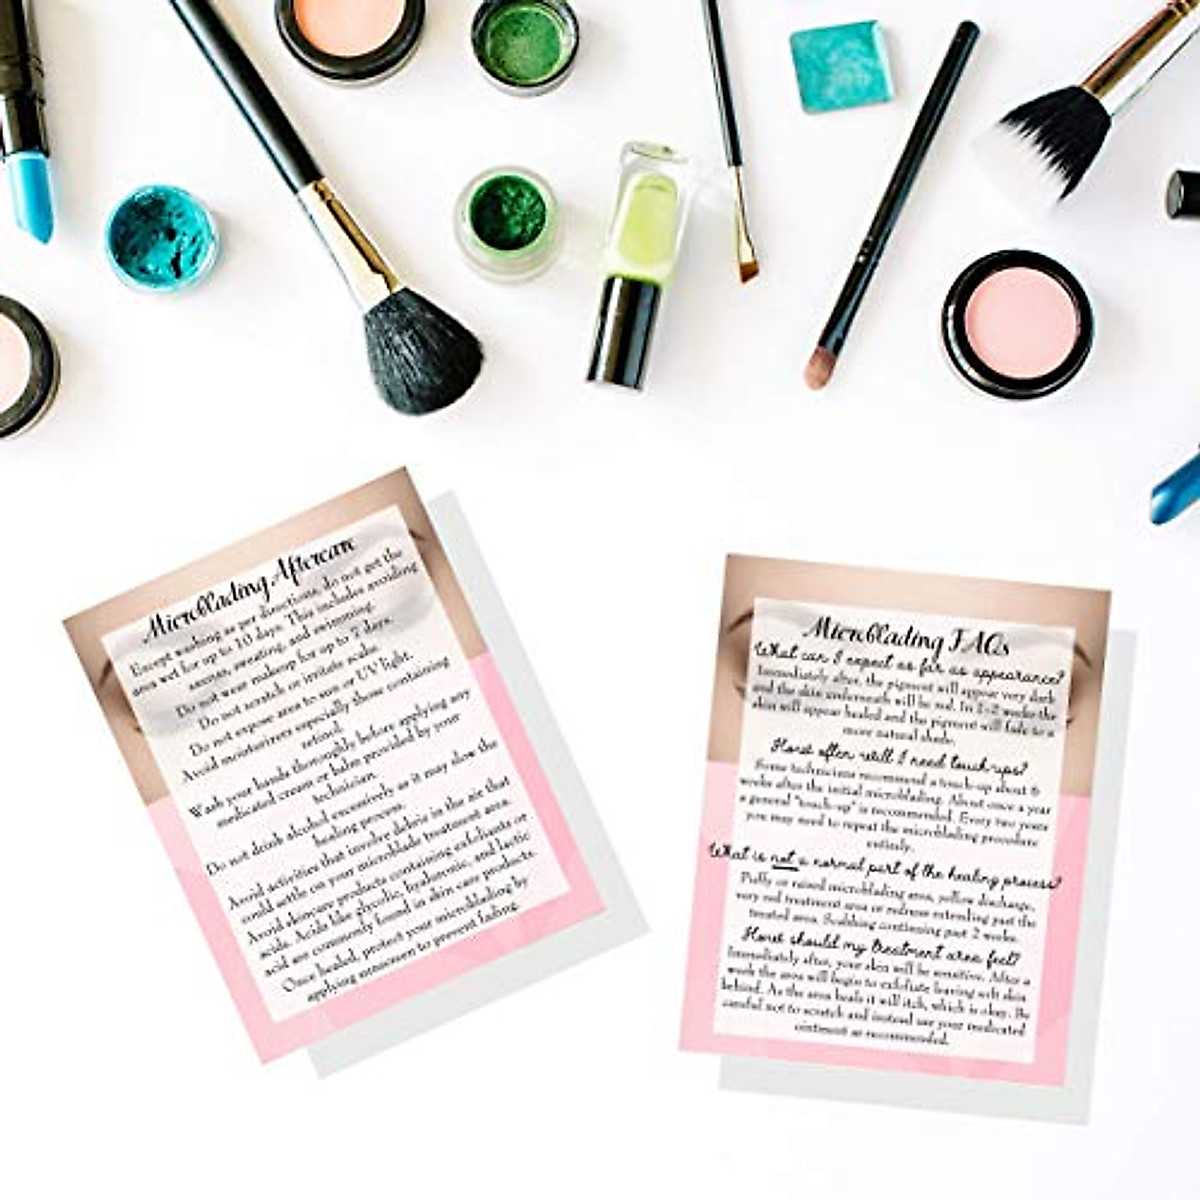 Microblading Aftercare
Except washing as per directions, do not get the
area wet for up to 10 days. This includes avoiding
saunas, sweating, and swimming.
Do not wear makeup for up to 7 days.
Do not scratch or irritate scabs.
Do not expose area to sun or UV light.
Avoid moisturizers especially those containing
retinol.
Wash your hands thoroughly before applying any
medicated cream or balm provided by your
technician.
Do not drink alcohol excessively as it may slow the
healing process.
Avoid activities that involve debris in the air that
could settle on your microblade treatment area.
Avoid skincare products containing exfoliants or
acids. Acids like glycolic, hyaluronic, and lactic
acid are commonly found in skin care products.
Once healed, protect your microblading by
applying sunscreen to prevent fading.
Microblading FAQs
What can I expect as far as appearance?
Immediately after, the pigment will appear very dark
and the skin underneath will be red. In 1-2 weeks the
skin will appear healed and the pigment will fade to a
more natural shade.
How often will I need touch-ups?
Some technicians recommend a touch-up about 6
weeks after the initial microblading. About once a year
a general "touch-up" is recommended. Every two years
you may need to repeat the microblading procedure
entirely.
What is not a normal part of the healing process?
Puffy or raised microblading area, yellow discharge,
very red treatment area or redness extending past the
treated area. Scabbing continuing past 2 weeks.
How should my treatment area feel?
Immediately after, your skin will be sensitive. After a
week the area will begin to exfoliate leaving soft skin
behind. As the area heals it will itch, which is okay. Be
careful not to scratch and instead use your medicated
ointment as recommended.